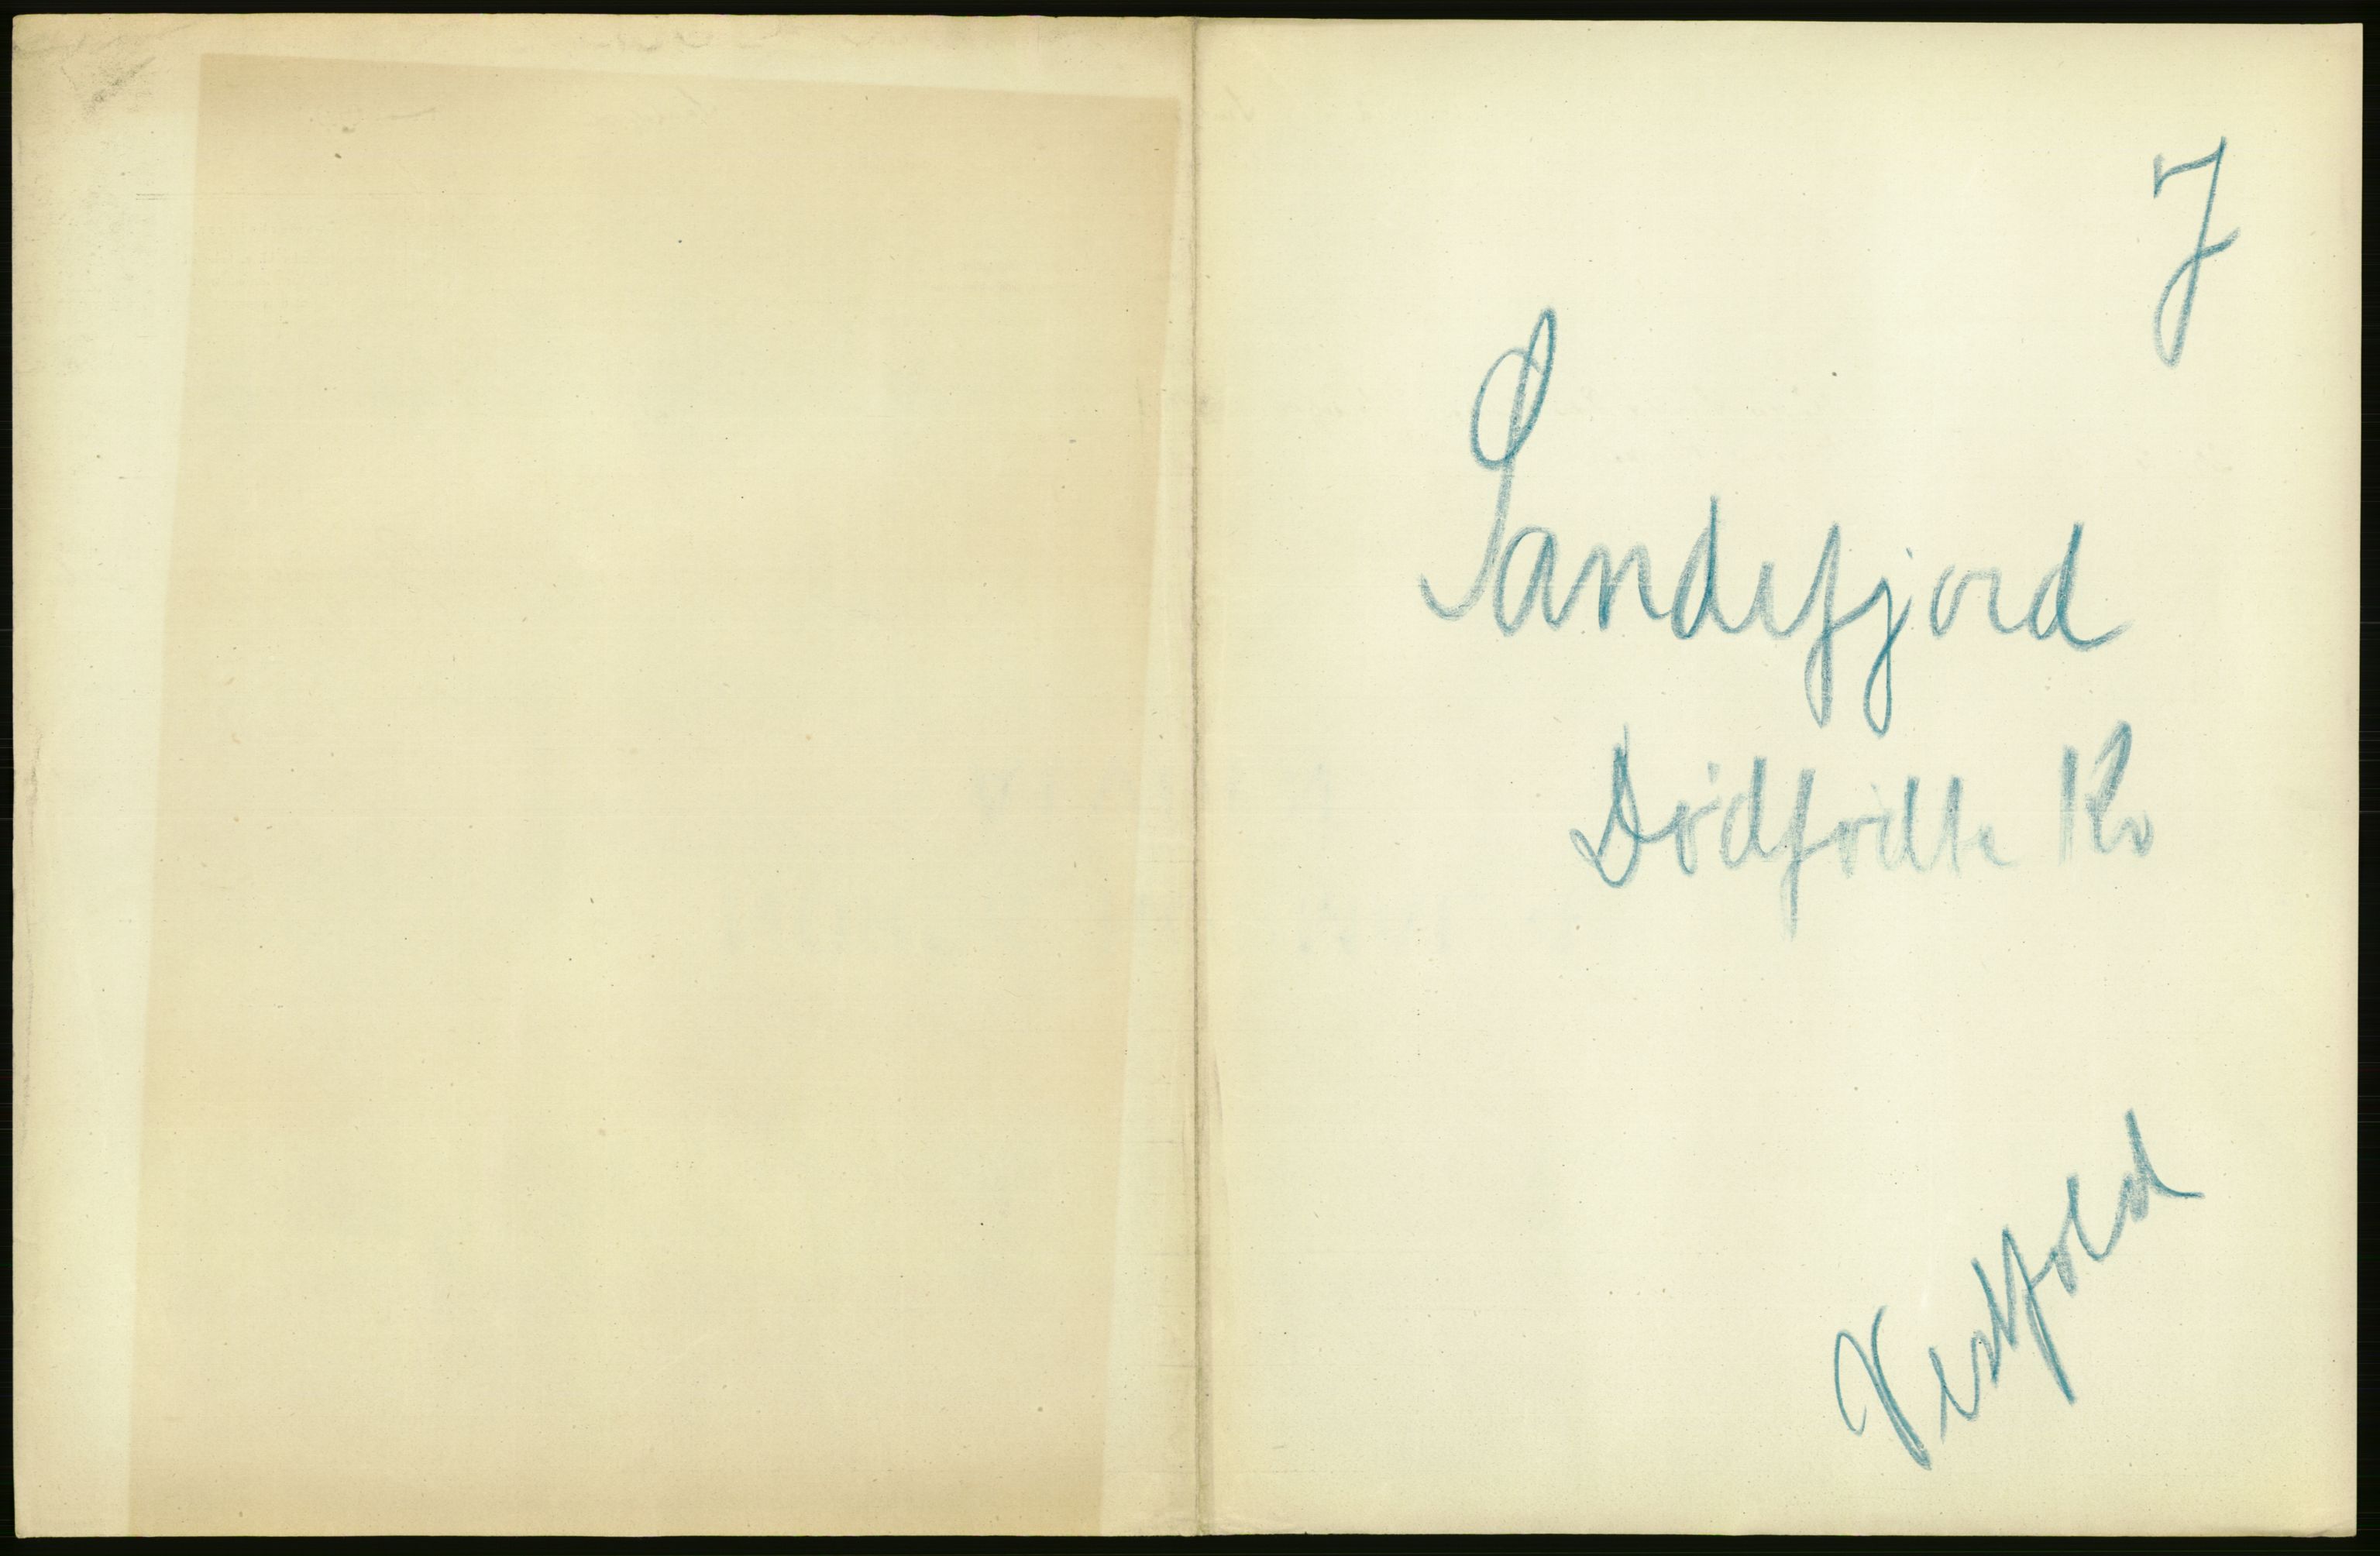 7
Sandefjord
Dødfødte Kv
Vestfold